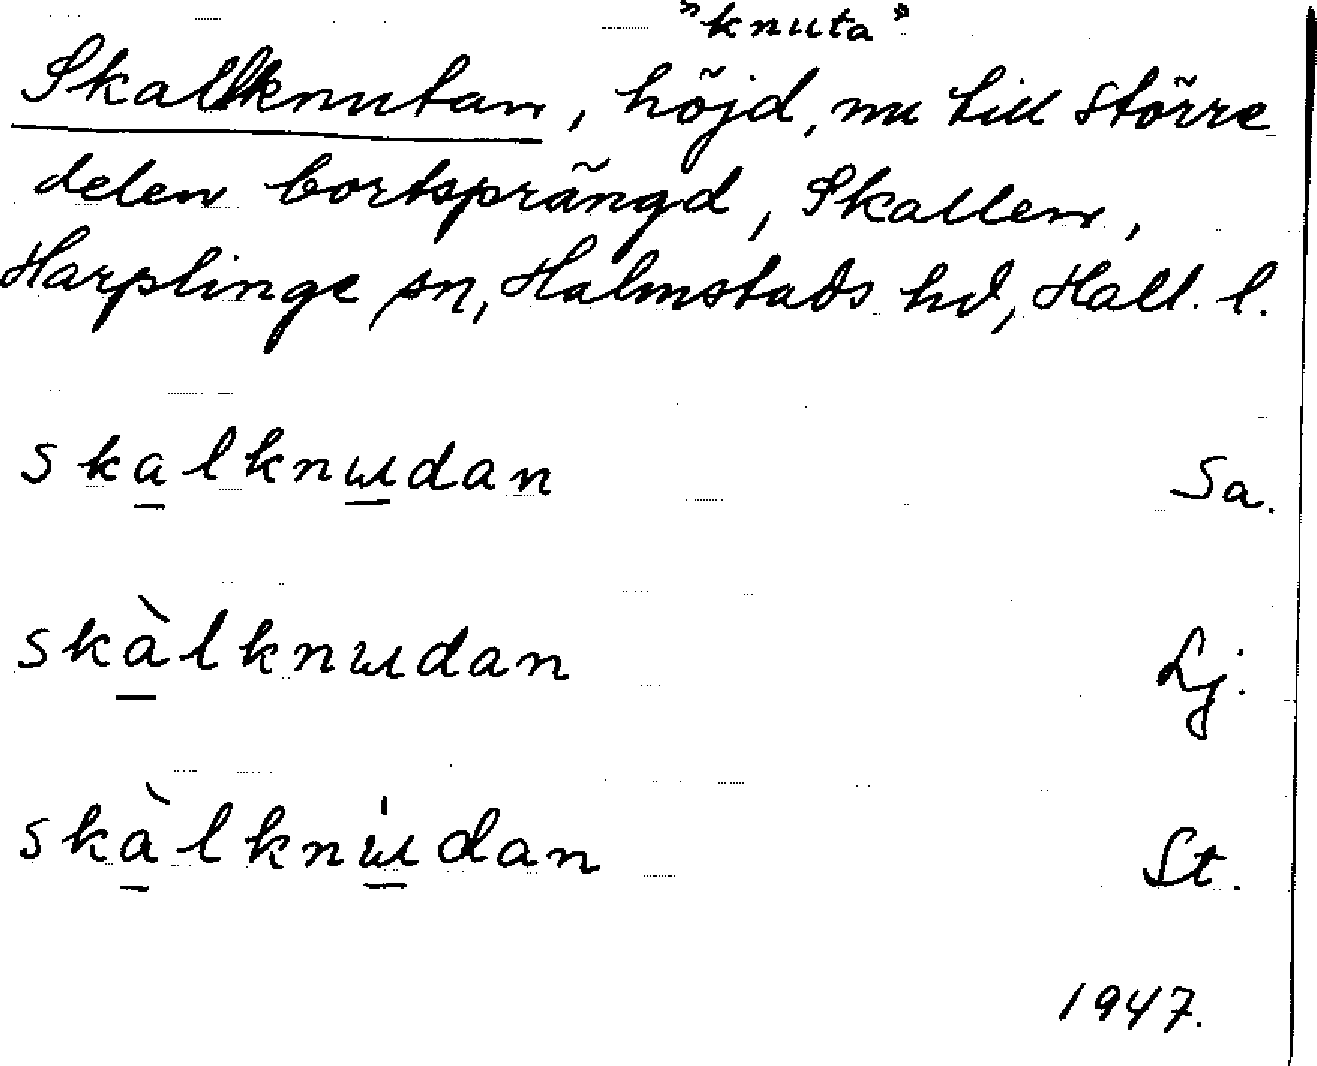 "knuta"
Skallknutan, höjd, nu till större
delen bortsprängd, Skallen,
Harplinge sn, Halmstads hd, Hall. l.
skalknɯdan Sa.
skàlknɯdan Lj.
skàlknɯ̍dan St.
1947.